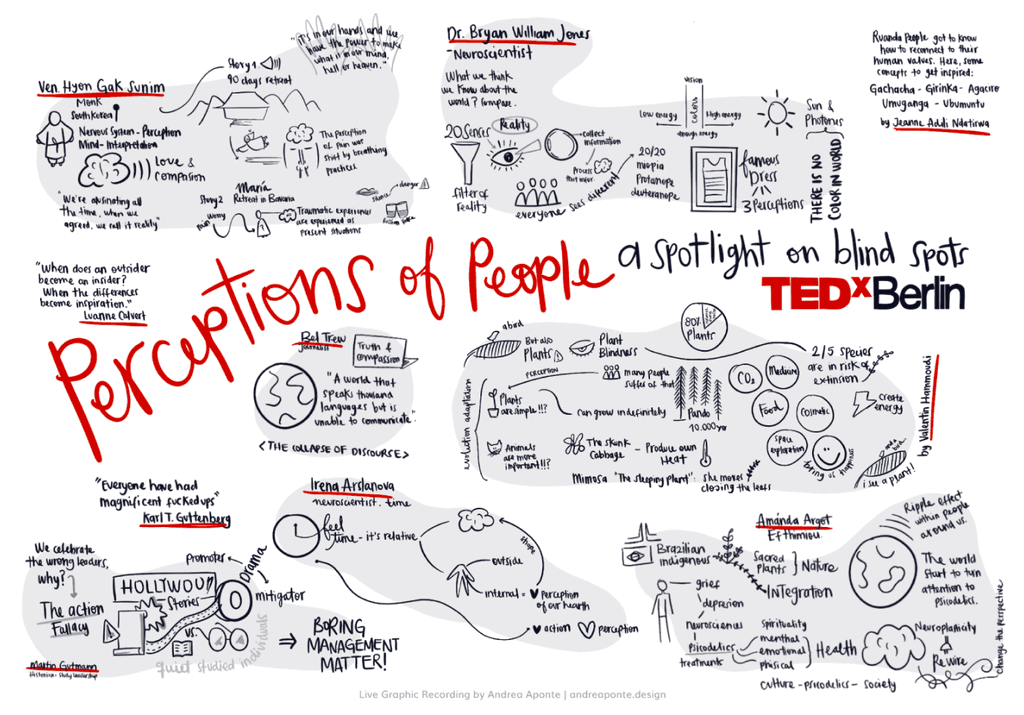 Ven Hyon Gak Sunim
Monk
South Korea
Nervous System - Perception
Mind - Interpretation
Love &
compasion
"We're alusinating all
the time, when we
agreed, we call it reality"
"it's in our hands and we
have the power to make
what is in our mind,
hell or heaven."
Story 1
90 days retreat
The perception
of pain was
shid by breathing
practices
Story 2
Maria
Retreat in Bavaria
pain
worry
Traumatic experiences
are experienced as
present situations
danger
shame
Dr. Bryan William Jones
- Neuroscientist
What we think
we know about the
world? Compare.
20 Senses
Reality
filter of
reality
everyone
sees different
collect
information
Process
that infor
20/20
miopia
Protanope
deuteranope
vision
colors
Low energy
High energy
enough energy
Sun &
Photones
famous
Dress
3 Perceptions
THERE IS NO
COLOR IN WORLD
Ruanda People got to know
how to reconnect to their
human values. Here, some
concepts to get inspired:
Gachacha - Girinka - Agaciro
Umuganga - Ubumuntu
by Jeanne Addi Ndatirwa
Perceptions of People
a spotlight on blind spots
TEDxBerlin
"When does an outsider
become an insider?
When the differences
become inspiration."
Luanne Calvert
Bel Trew
Journalist
Truth &
compassion
"A world that
speaks thousand
languages but is
unable to communicate."
<THE COLLAPSE OF DISCOURSE>
a bird
But also
Plants
Plant
Blindness
PERCEPTION
many people
suffer of that
evolution adaptation
Plants
are simple!!?
can grow indefinitely
Pando
10.000yr
Animals
are more
important!!?
The skunk
Cabbage
- Produce own
Heat
Mimosa "The sleeping plant":
she moves
closing the leafs
80%
Plants
2/5 species
are in risk of
extinsion
CO2
Medicine
Food
Cosmetic
space
exploration
bring us happiness
create
energy
and a bird...
i see a plant!
by Valentin Hammoudi
"Everyone have had
magnificent fuckedups"
Karl T. Guttenberg
We celebrate
the wrong leaders,
why?
The action
Fallacy
HOLLYWOOD
Stories
vs.
quiet studied individuals
Promoter
Drama
mitigator
BORING
MANAGEMENT
MATTER!
Martin Gutmann
Historian - study leadership
Irena Arslanova
neuroscientist. time
feel
time - it's relative
outside
shape
internal = perception
of our hearth
action
perception
Amanda Argot
Efthimiou.
Brazilian
indigenous
Sacred
plants
Nature
INtegration
grief
depresion
neurosciences
Psicodelics
treatments
Spirituality
menthal
emotional
phisical
Health
culture - psicodelics - society
Ripple effect
within people
around us.
The world
start to turn
attention to
Psicodelics.
Neuroplasticity
Re wire
change the perspective
Live Graphic Recording by Andrea Aponte | andreaponte.design